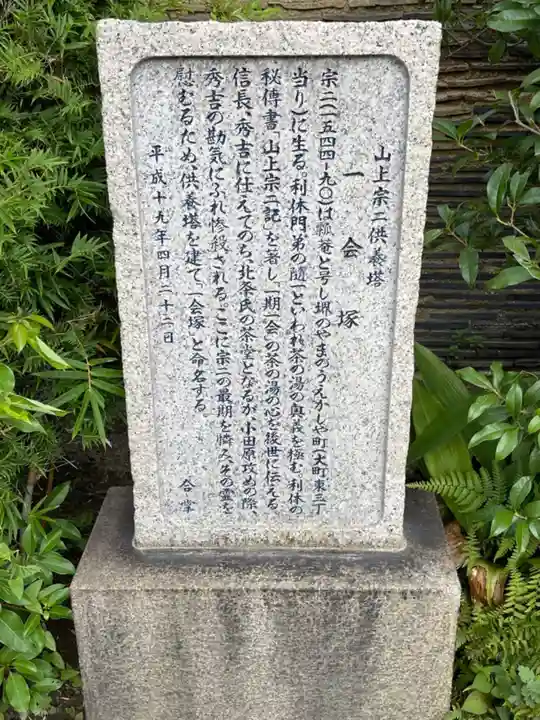 山上宗二供養塔
一会塚
宗二(一五四四-九〇)は瓢庵と号し堺のやまのうえかしや町(大町東三丁
当り)に生る。利休門弟の随一といわれ茶の湯の奥義を極む。利休の
秘傳書「山上宗二記」を著し、「一期一会」の茶の湯の心を後世に伝える。
信長、秀吉に仕えてのち、北条氏の茶堂となるが、小田原攻めの際
秀吉の勘気にふれ惨殺される。ここに宗二の最期を憐みその霊を
慰むるため供養塔を建て、「一会塚」と命名する。
合掌
平成十九年四月二十二日